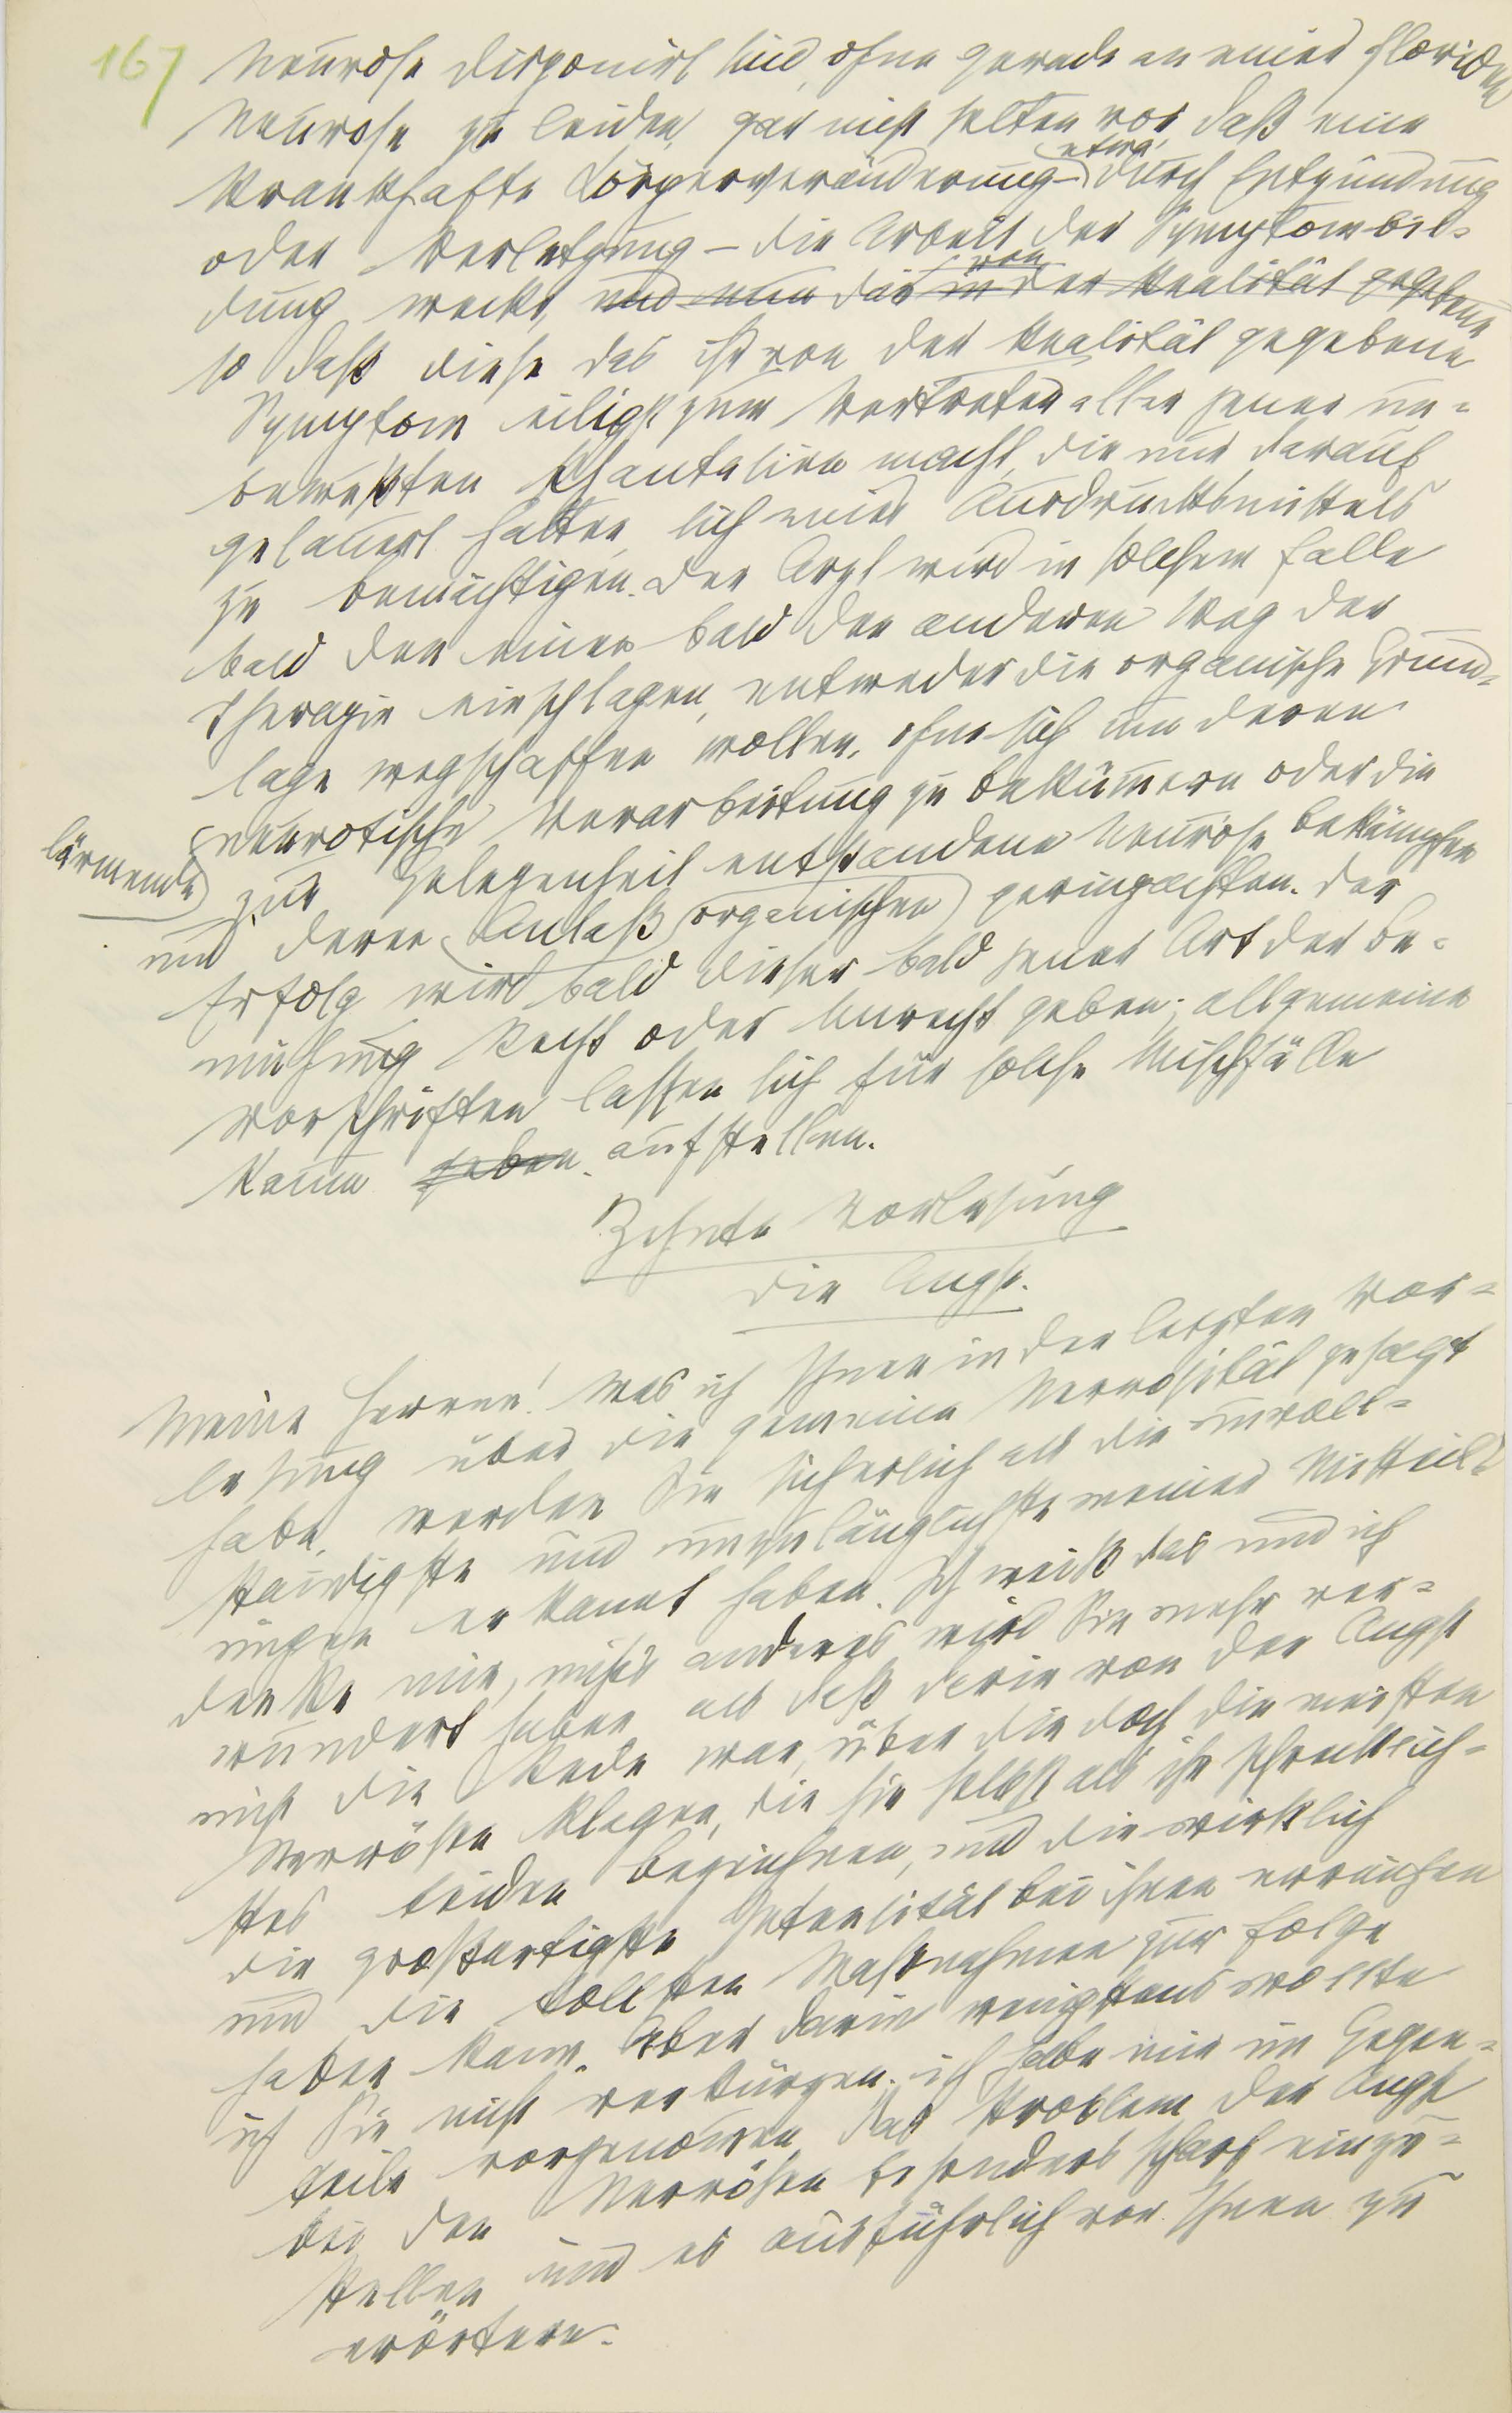 167
Neurose disponirt sind, ohne gerade an einer floriden
Neurose zu leiden, gar nicht selten vor, daß eine
krankhafte Körperveränderung – etwa durch Entzündung
oder Verletzung – die Arbeit der Symptombil-
dung weckt, und nun das in von der Realität gegebene
so daß diese das ihr von der Realität gegebene
Symptom eiligst zum Vertreter aller jener un-
bewußten Phantasien macht, die nur darauf
gelauert hatten, sich eines Ausdrucksmittels
zu bemächtigen. Der Arzt wird in solchem Falle
bald den einen bald den anderen Weg der
Therapie einschlagen, entweder die organische Grund-
lage wegschaffen wollen, ohne sich um deren
lärmende neurotische Verarbeitung zu bekümmern oder die
zur Gelegenheit entstandene Neurose bekämpfen
und deren Anlaß organischen geringachten. Der
Erfolg wird bald dieser bald jener Art der Be-
mühung Recht oder Unrecht geben; allgemeine
Vorschriften lassen sich für solche Mischfälle
kaum geben aufstellen.
Zehnte Vorlesung
Die Angst.
Meine Herren! Was ich Ihnen in der letzten Vor-
lesung über die gemeine Nervosität gesagt
habe, werden Sie sicherlich als die unvoll-
ständigste und unzulänglichste meiner Mitteil-
ungen erkannt haben. Ich weiß das und ich
denke mir, nichts anderes wird Sie mehr ver-
wundert haben als daß darin von der Angst
nicht die Rede war, über die doch die meisten
Nervösen klagen, die sie selbst als ihr schrecklich-
stes Leiden bezeichnen, und die wirklich
die großartigste Intensität bei ihnen erreichen
und die tollsten Maßnahmen zur Folge
haben kann. Aber darin wenigstens wollte
ich Sie nicht verkürzen. ich habe mir im Gegen-
teile vorgenommen das Problem der Angst
bei den Nervösen besonders scharf einzu-
stellen und es ausführlich vor Ihnen zu
erörtern.